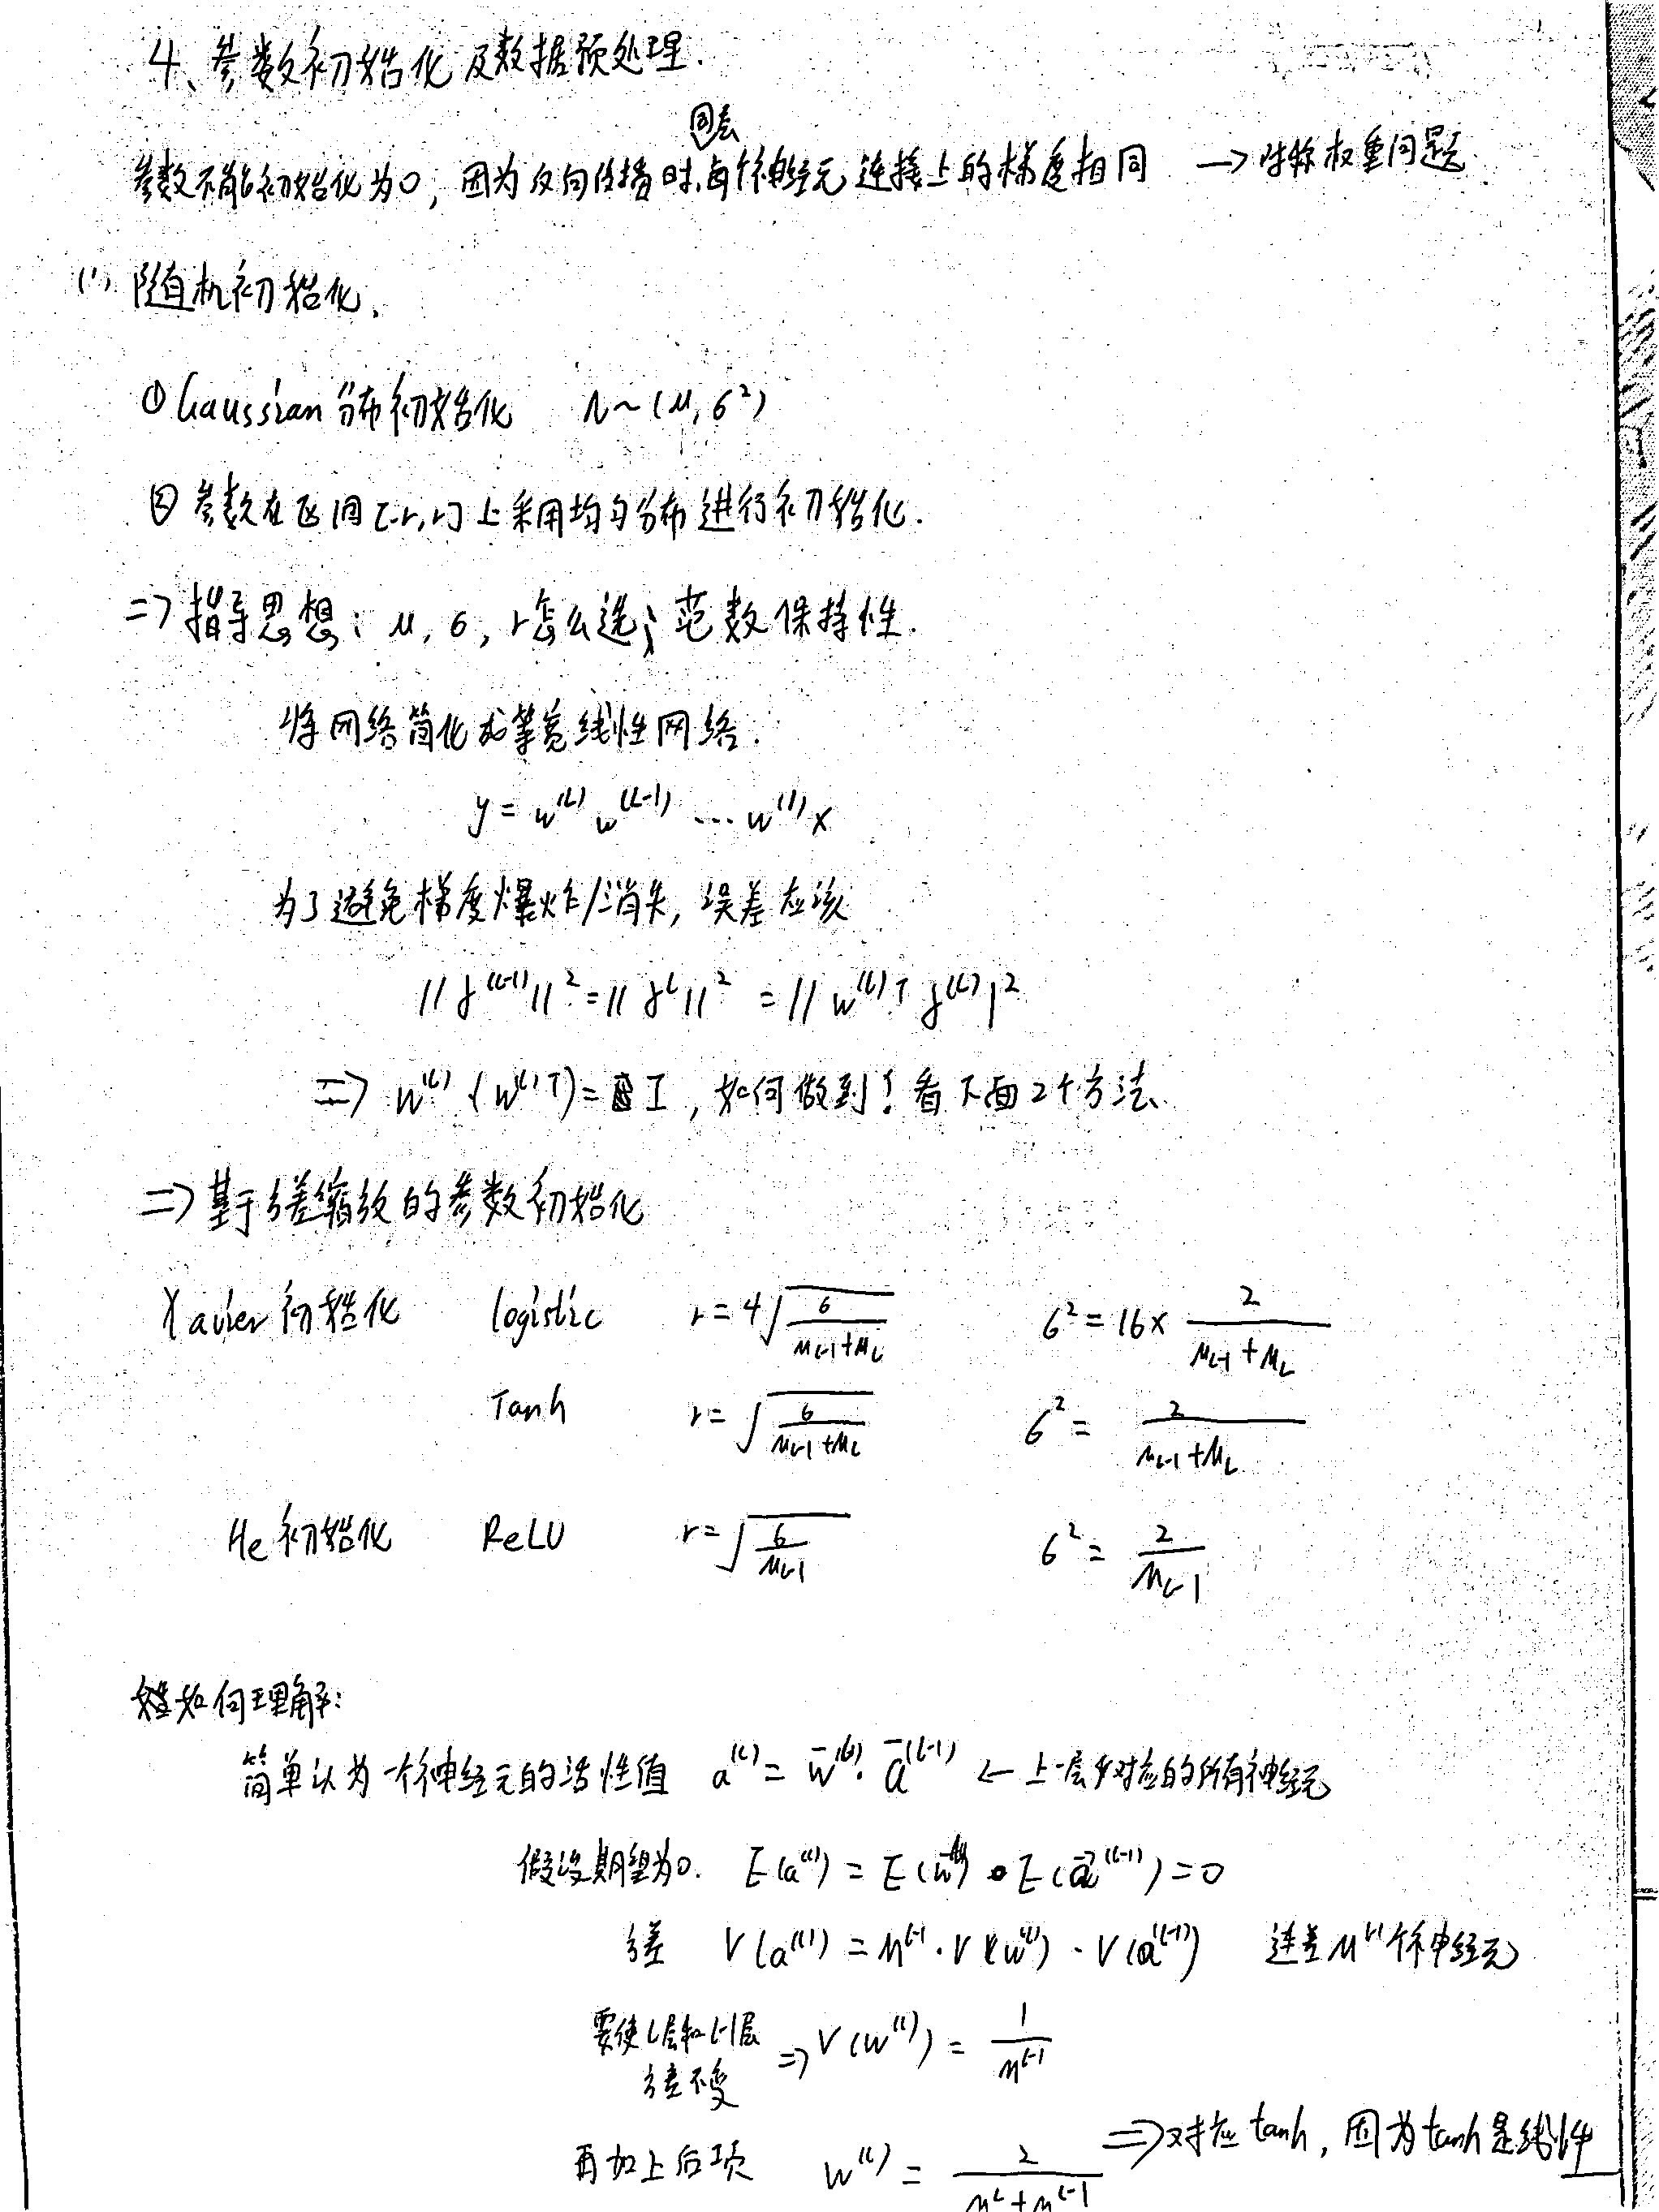 4、参数初始化及数据预处理.
同层
参数不能初始化为0, 因为反向传播时,每个神经元连接上的梯度相同 → 对称权重问题.
(1) 随机初始化.
① Gaussian 分布初始化 N~(μ, σ²)
② 参数在区间[-r,r]上采用均匀分布进行初始化.
=> 指导思想: μ, σ, r怎么选; 范数保持性.
将网络简化成等宽线性网络.
y = w^(L) w^(L-1) ... w^(1) x
为了避免梯度爆炸/消失, 误差应该
||δ^(l-1)||² = ||δ^l||² = ||w^(l)T δ^(l)|²
=> w^(l) (w^(l)T) = I, 如何做到! 看下面2个方法.
=> 基于方差缩放的参数初始化
Xavier 初始化 logistic r = 4√(6/(M_{l-1}+M_l)) σ² = 16 × 2/(M_{l-1}+M_l)
Tanh r = √(6/(M_{l-1}+M_l)) σ² = 2/(M_{l-1}+M_l)
He 初始化 ReLU r = √(6/M_{l-1}) σ² = 2/M_{l-1}
如何理解:
简单认为一个神经元的活性值 a^(l) = w̄^(l) · ā^(l-1) ← 上一层对应的所有神经元
假设期望为0. E(a^(l)) = E(w̄^(l)) · E(ā^(l-1)) = 0
方差 V(a^(l)) = M^{l-1} · V(w^(l)) · V(a^(l-1)) M^{l-1}个神经元
要使l层和l-1层
方差不变 => V(w^(l)) = 1/M^{l-1}
再加上后项 w^(l) = 2/(M^l+M^{l-1}) => 对应 tanh, 因为tanh是线性